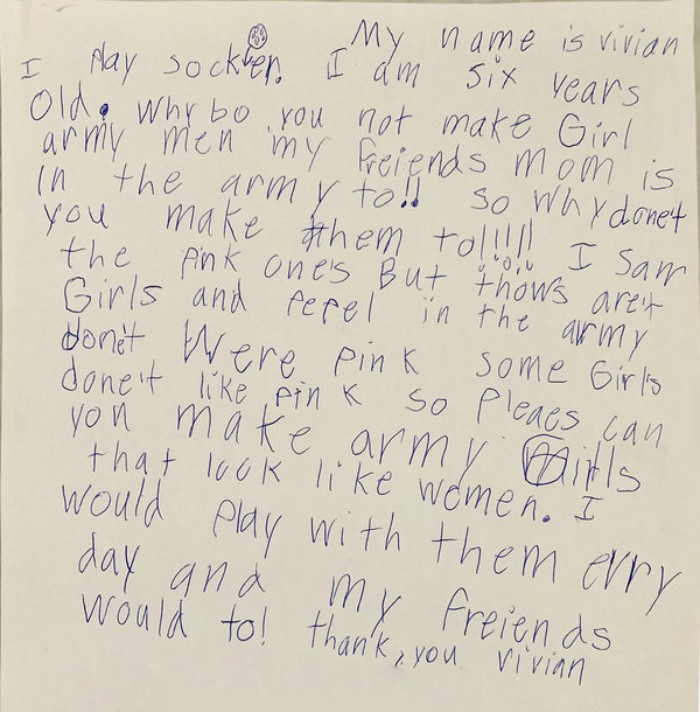 My name is vivian
I play socker. I am six years
Old. Why bo you not make Girl
army men my freiends mom is
in the army to!! so why donet
you make them to!!!!! I sarr
the pink one's But thows are't
Girls and pepel in the army
donet Were pink some Girls
done't like pink so Pleaes can
you make army Girls
that look like women. I
would play with them erry
day and my freiends
would to! thank, you vivian